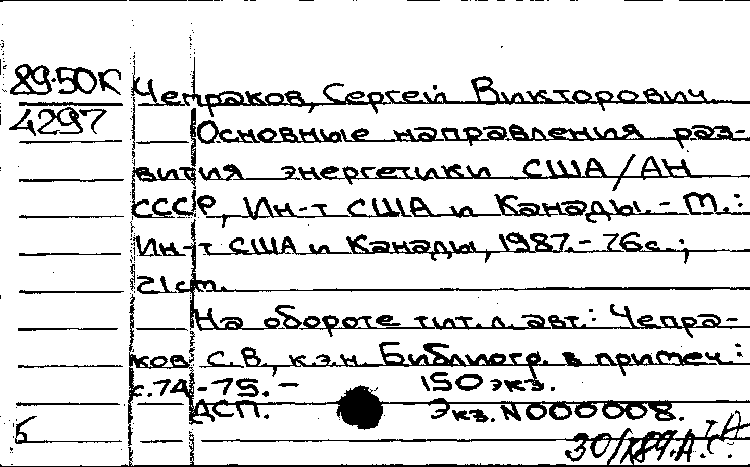 89-50К
4297
Чепраков, Сергей Викторович
Основные направления раз-
вития энергетики США/АН
СССР, Ин-т США и Канады. - М.:
Ин-т США и Канады, 1987. - 76с.;
21см.
На обороте тит. л. авт.: Чепра-
ков С. В., к.э.н. Библиогр. в примеч.:
с. 74-75. - 150 экз.
ДСП. Экз. N000008.
Б